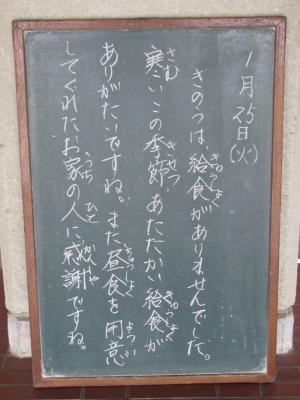 1月25日(火)
きのうは、給食がありませんでした。
寒いこの季節、あたたかい給食が
ありがたいですね。また昼食を用意
してくれたお家の人に感謝ですね。